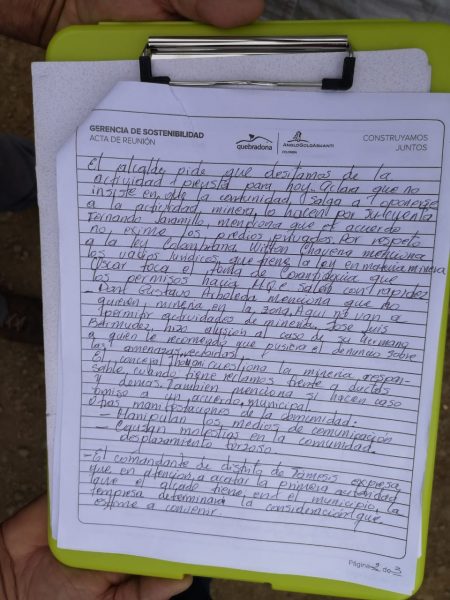 GERENCIA DE SOSTENIBILIDAD
ACTA DE REUNIÓN
quebradona
ANGLOGOLDASHANTI
COLOMBIA
CONSTRUYAMOS
JUNTOS
El alcalde pide que desitamos de la
actividad prevista para hoy. Aclara que no
insiste en que la comunidad, salga a oponerse
a la actividad minera, lo hacen por su cuenta
Fernando Jaramillo, menciona que el acuerdo
no exime los predios privados. Por respeto
a la ley Colombiana William Chavarria menciona
los vacios juridicos que tiene la ley en materia minera
Oscar toca el tema de Corantioquia que
los permisos hacia MQC salen con rapidez
- Don Gustavo Arboleda menciona que no
quieren mineria en la zona. Aqui no van a
permitir actividades de mineria. Jose Luis
Bermudez, hizo alusión al caso de su hermano
a quien le recomendo que pusiera el denuncio sobre
las amenazas recibidas
El concejal cuestiona la mineria respon-
sable, cuando tiene reclamos frente a ductos
y demas. Tambien menciona si hacen caso
omiso a un acuerdo municipal.
Otras manifestaciones de la comunidad:
- Manipulan los medios de comunicación
- Causan molestias en la comunidad.
desplazamiento forzoso.
- El comandante de distrito de Támesis expresa
que en atencion a acatar la primera autoridad
que el alcalde tiene en el municipio, la
empresa determinara la consideración que
estime a convenir.
Página 2 de 3